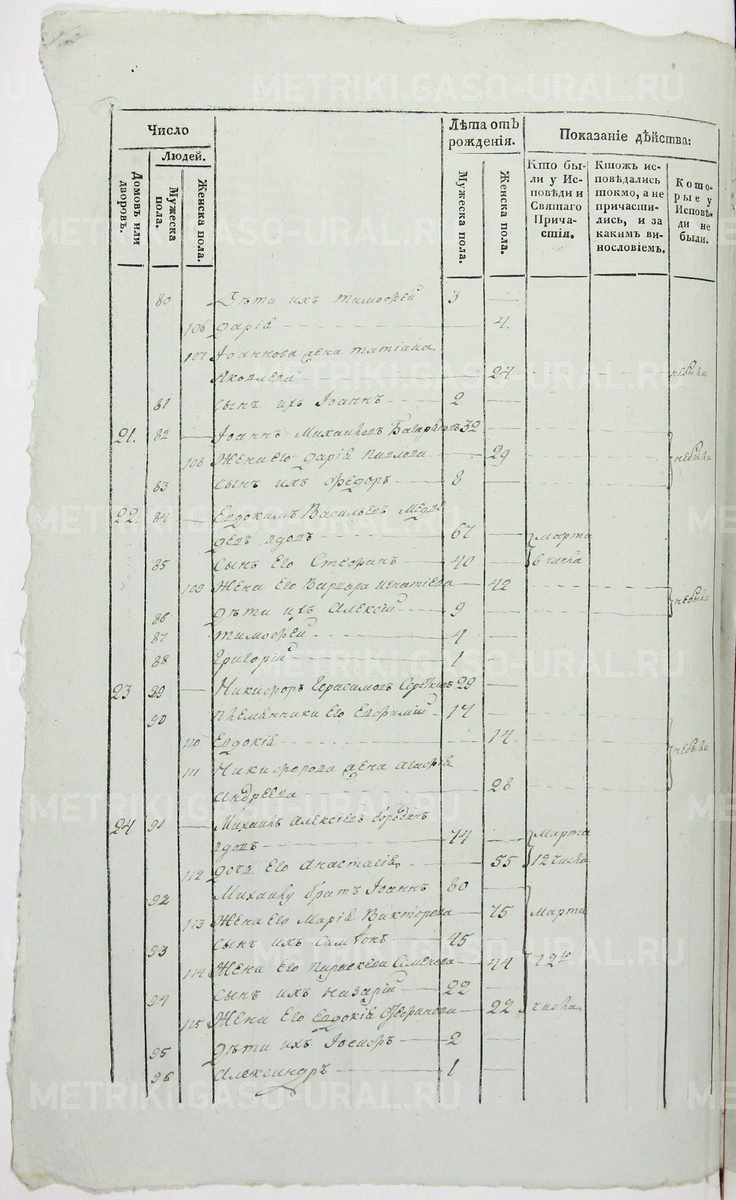 Число
Лѣта отъ рожденія.
Показаніе дѣйства:
Домовъ или дворовъ.
Людей.
Мужеска пола.
Женска пола.
Мужеска пола.
Женска пола.
Кто были у Исповѣди и Святаго Причастія.
Ктожъ исповѣдались токмо, а не причастились, и за какимъ винословіемъ.
Которые у Исповѣди не были.
80 Дѣти ихъ Тимофей 3
106 Дарія 4.
107 Іоаннова жена Татіана
Яковлева 24 небыли
81 Сынъ ихъ Іоаннъ 2
21. 82 Іоаннъ Михайловъ 32
108 Жена его Дарія Павлова 29 небыли
83 Сынъ ихъ Федоръ 8
22. 84 Евдокимъ Васильевъ Медве
девъ вдовъ 67 Марта
85 Сынъ Его Стефанъ 40 6 числа
109 Жена Его Варвара Игнатіева 42
86 Дѣти ихъ Алексій 9 небыли
87 Тимофей 4
88 Григорій 1
23 89 Никифоръ Герасимовъ 29
90 Племянники Его Евфимій 17
110 Евдокія 14
111 Никифорова жена
Андреева 28 небыли
24 91 Михаилъ Алексіевъ Бородинъ
вдовъ 74 Марта
112 Дочь Его Анастасія 55 12 числа
92 Михаилу братъ Іоаннъ 60
113 Жена Его Марія Викторова 75 Марта
93 Сынъ ихъ Симеонъ 45
114 Жена Его Параскева 44 12го
94 Сынъ ихъ Назарій 22
115 Жена Его Евдокія Стефанова 22 числа
95 Дѣти ихъ Іосифъ 2
96 Александръ 1
METRIKI.GASO-URAL.RU